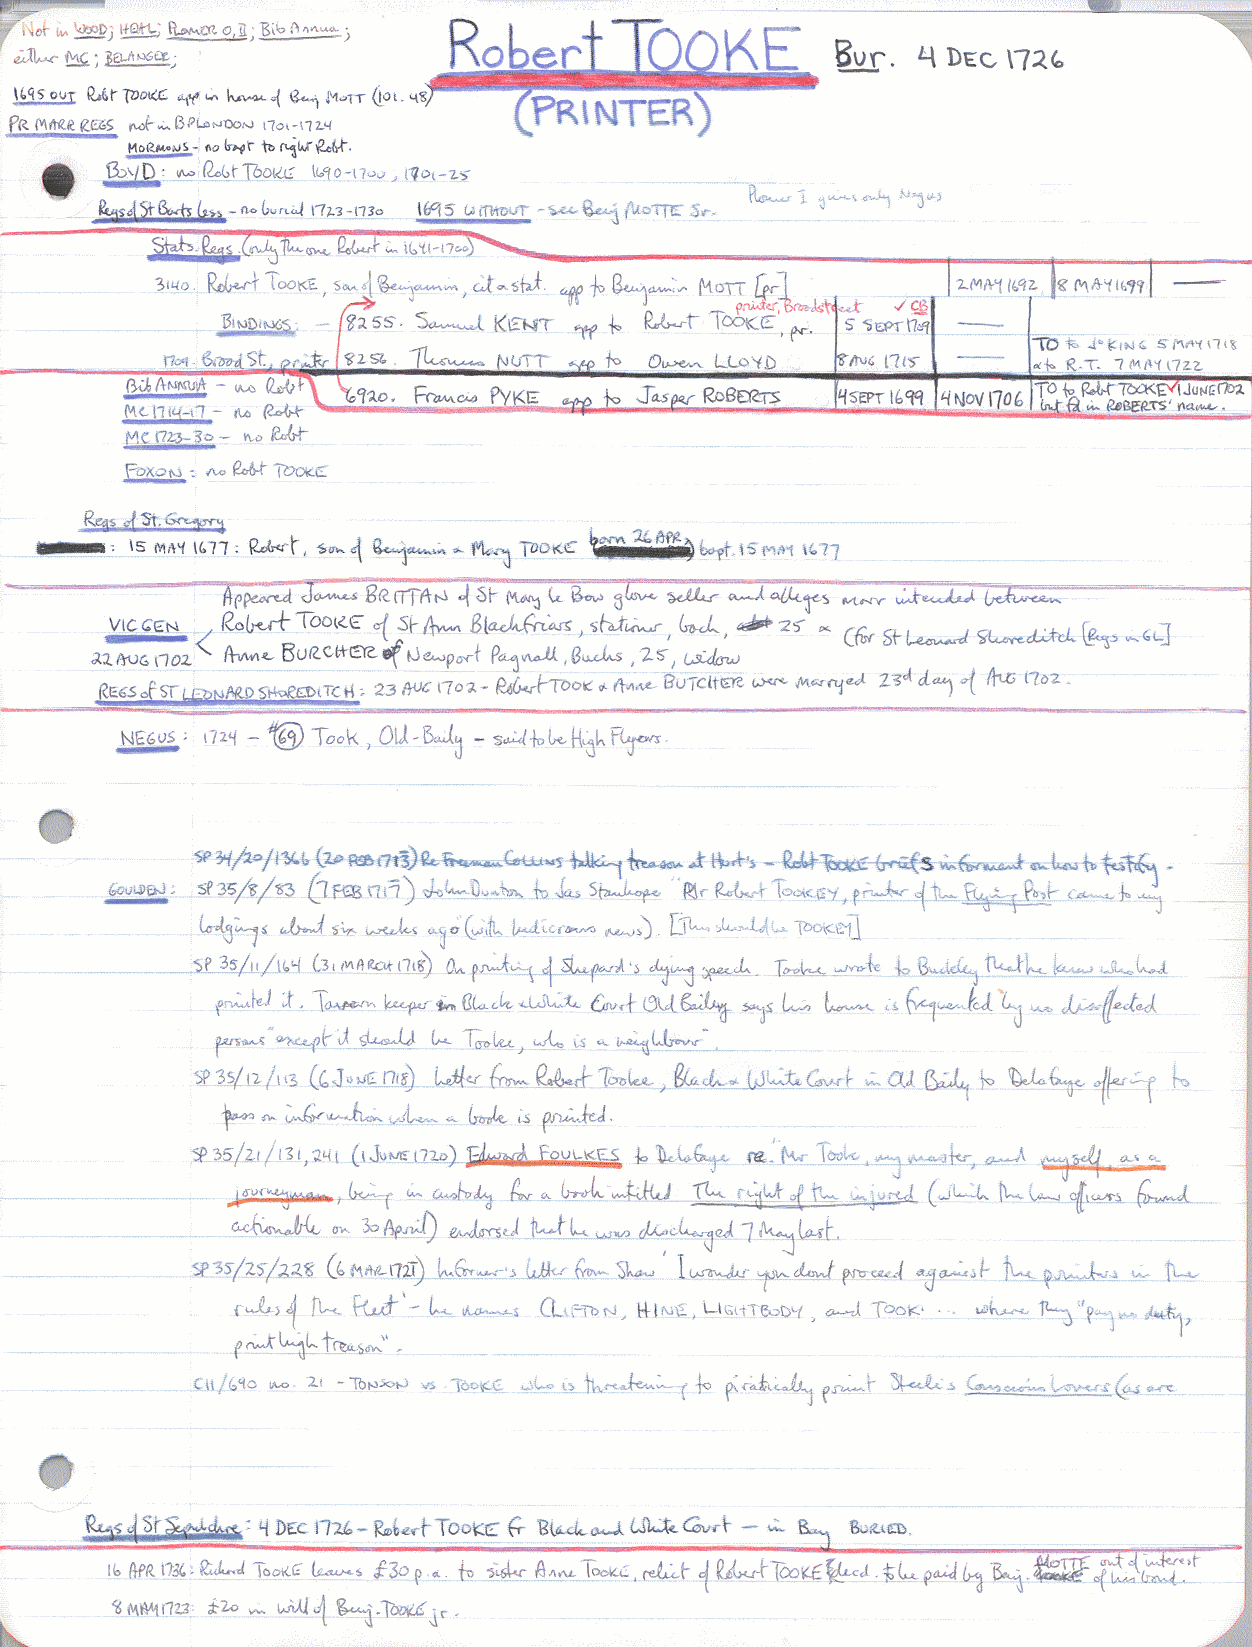 Not in WOOD; HODL; PLOMER O, II; Bib Annua;
either MC; BELANGER;
Robert TOOKE Bur. 4 DEC 1726
(PRINTER)
1695 OUT Robt TOOKE app in house of Benj MOTT (101.48)
PR MARR REGS not in BP LONDON 1701-1724
MORMONS - no bapt to right Robt.
BOYD: no Robt TOOKE 1690-1700, 1701-25
Plomer I gives only Negus
Regs of St Barts Less - no burial 1723-1730 1695 WITHOUT - see Benj MOTTE Sr.
Stats. Regs. (only the one Robert in 1641-1700)
3140. Robert TOOKE, son of Benjamin, cit & stat. app to Benjamin MOTT [pr] 2 MAY 1692 8 MAY 1699 —
printer, Broadstreet ✓ CB
BINDINGS: - 8255. Samuel KENT app to Robert TOOKE, pr. 5 SEPT 1709 —
1709. Broad St, printer 8256. Thomas NUTT app to Owen LLOYD 8 AUG 1715 — TO to Jo KING 5 MAY 1718
& to R.T. 7 MAY 1722
Bib ANNUA - no Robt
6920. Francis PYKE app to Jasper ROBERTS 4 SEPT 1699 4 NOV 1706 TO to Robt TOOKE ✓ 1 JUNE 1702
but fd in ROBERTS' name.
MC 1714-17 - no Robt
MC 1723-30 - no Robt
FOXON: no Robt TOOKE
Regs of St. Gregory
: 15 MAY 1677: Robert, son of Benjamin & Mary TOOKE born 26 APR, bapt. 15 MAY 1677
Appeared James BRITTAN of St Mary le Bow glove seller and alleges marr intended between
VIC GEN Robert TOOKE of St Ann Blackfriars, stationer, bach, 25 & (for St Leonard Shoreditch [Regs in GL]
22 AUG 1702 Anne BURCHER of Newport Pagnall, Bucks, 25, widow
REGS of ST LEONARD SHOREDITCH: 23 AUG 1702 - Robert TOOK & Anne BUTCHER were marryed 23rd day of AUG 1702.
NEGUS: 1724 - #69 Took, Old-Baily - said to be High Flyers.
SP 34/20/1366 (20 FEB 1713) Re Freeman Collins talking treason at Hart's - Robt TOOKE briefs informant on how to testify.
GOULDEN: SP 35/8/83 (7 FEB 1717) John Dunton to Jas Stanhope "Mr Robert TOOKEY, printer of the Flying Post came to my
lodgings about six weeks ago (with ludicrous news). [This should be TOOKEY]
SP 35/11/164 (31 MARCH 1718) On printing of Shepard's dying speech. Tooke wrote to Buckley that he knew who had
printed it. Tavern keeper in Black & White Court Old Bailey says his house is frequented by no disaffected
persons "except it should be Tooke, who is a neighbour".
SP 35/12/113 (6 JUNE 1718) Letter from Robert Tooke, Black & White Court in Old Baily to Delafaye offering to
pass on information when a book is printed.
SP 35/21/131, 241 (1 JUNE 1720) Edward FOULKES to Delafaye re. "Mr Tooke, my master, and myself, as a
journeyman, being in custody for a book intitled The right of the injured (which the law officers found
actionable on 30 April) endorsed that he was discharged 7 May last.
SP 35/25/228 (6 MAR 1721) Informer's letter from Shaw 'I wonder you dont proceed against the printers in the
rules of the Fleet' - he names CLIFTON, HINE, LIGHTBODY, and TOOK ... where they "pay no duty,
print high treason".
C11/690 no. 21 - TONSON vs. TOOKE who is threatening to piratically print Steele's Conscious Lovers (as are
Regs of St Sepulchre: 4 DEC 1726 - Robert TOOKE fr Black and White Court - in Bay BURIED.
16 APR 1736: Richard TOOKE leaves £30 p.a. to sister Anne TOOKE, relict of Robert TOOKE decd. to be paid by Benj. MOTTE out of interest
of his bond.
8 MAY 1723: £20 in will of Benj. TOOKE jr.